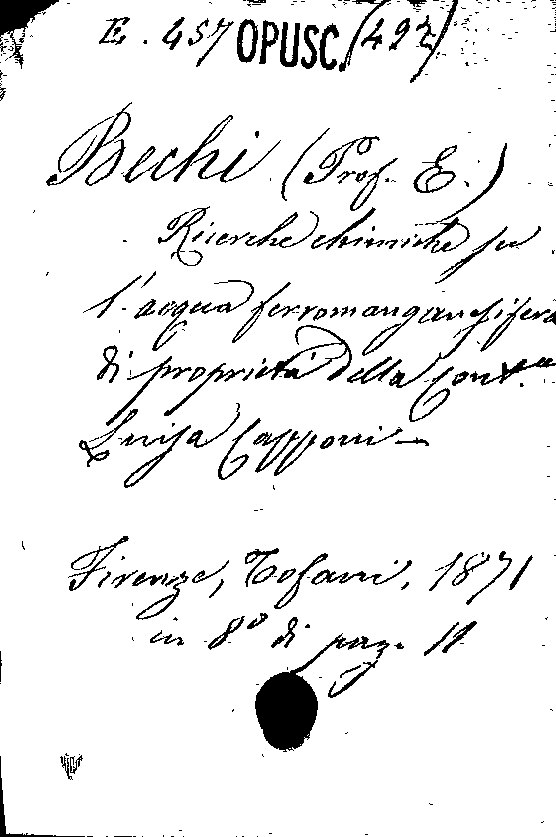 E. 457 OPUSC. (492)
Bechi (Prof. E.)
Ricerche chimiche su
l'acqua ferromanganesifera
di proprietà della Cont.ssa
Luisa Capponi –
Firenze, Tofani, 1871
in 8º di pag. 11